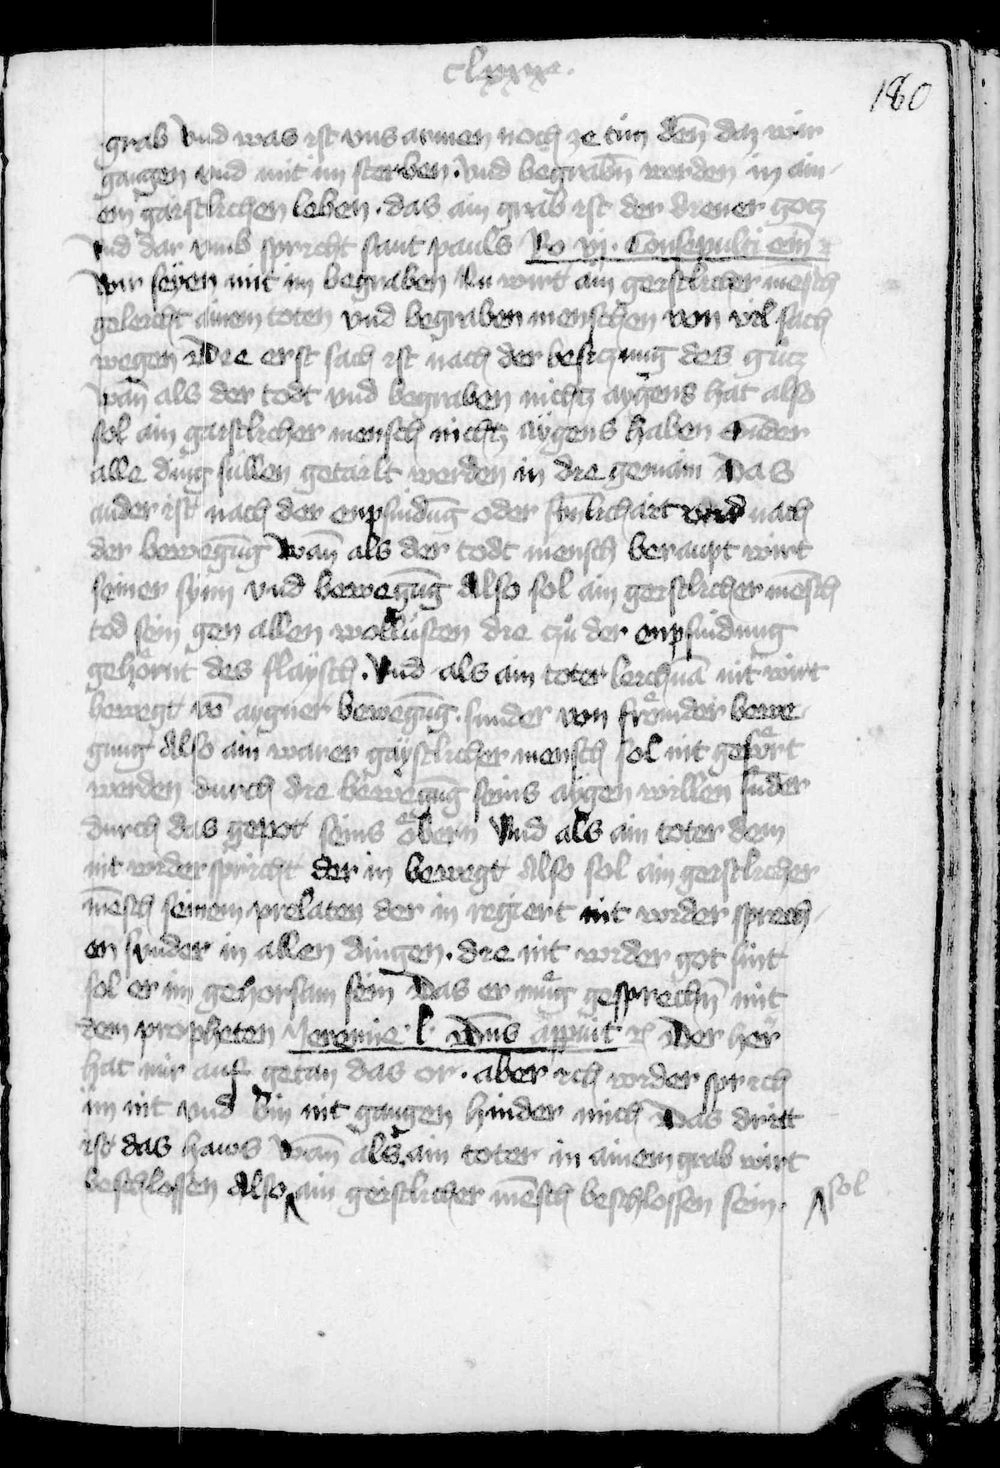 clxxxͦ.
180
grab Vnd was ist vns armen noch ze tun den̄ daz wir
gangen vnd mit im sterben. vnd begrabn̄ werden in ain-
em gaistlichen leben. das ain grab ist der diener gotz
Vnd dar vmb spricht sant pauls Ro vj. Consepulti em̄ ⁊
Wir seyen mit im begraben Nu wirt ain geistlicher mēsch
geleicht ainem toten vnd begraben menschen von vil sach
wegen Die erst sach ist nach der besitzung des gutz
Wan̄ als der todt vnd begraben nichtz aygens hat also
sol ain gaistlicher mensch nichtz aygens haben sunder
alle ding sullen getailt werden in die gemain Das
ander ist nach der enpfindūg oder sinlichait vnd nach
der bewegūg Wan̄ als der todt mensch beraupt wirt
seiner synn vnd bewegūg Also sol ain geistlicher mēsch
tod sein gen allen wollüsten die tzů der enpfindung
gehörnt des flaysch. Vnd als ain toter leichnā nit wirt
bewegt vō aygner bewegūg. sunder von fremder bewe-
gung Also ain warer gaystlicher mensch sol nit gefürt
werden durch die bewegūg seins aygen willen sūder
durch das gepot seins obern Vnd als ain toter dem
nit wider spricht der in bewegt Also sol ain geistlicher
mēsch seinem prelaten der in regiert nit wider sprech-
en sunder in allen dingen. die nit wider got sint
sol er im gehorsam sein Das er mug gesprechn̄ mit
dem propheten Jeremie. l. Dn̄s apperuit ⁊c̄ Der her
hat mir auf getan das or. aber ich wider sprich
im nit vnd bin nit gangen hinder mich Das dritt
ist das haws Wan̄ als ain toter in ainem grab wirt
beschlossen Also ^ ain geistlicher mēsch beschlossen sein. ^ sol